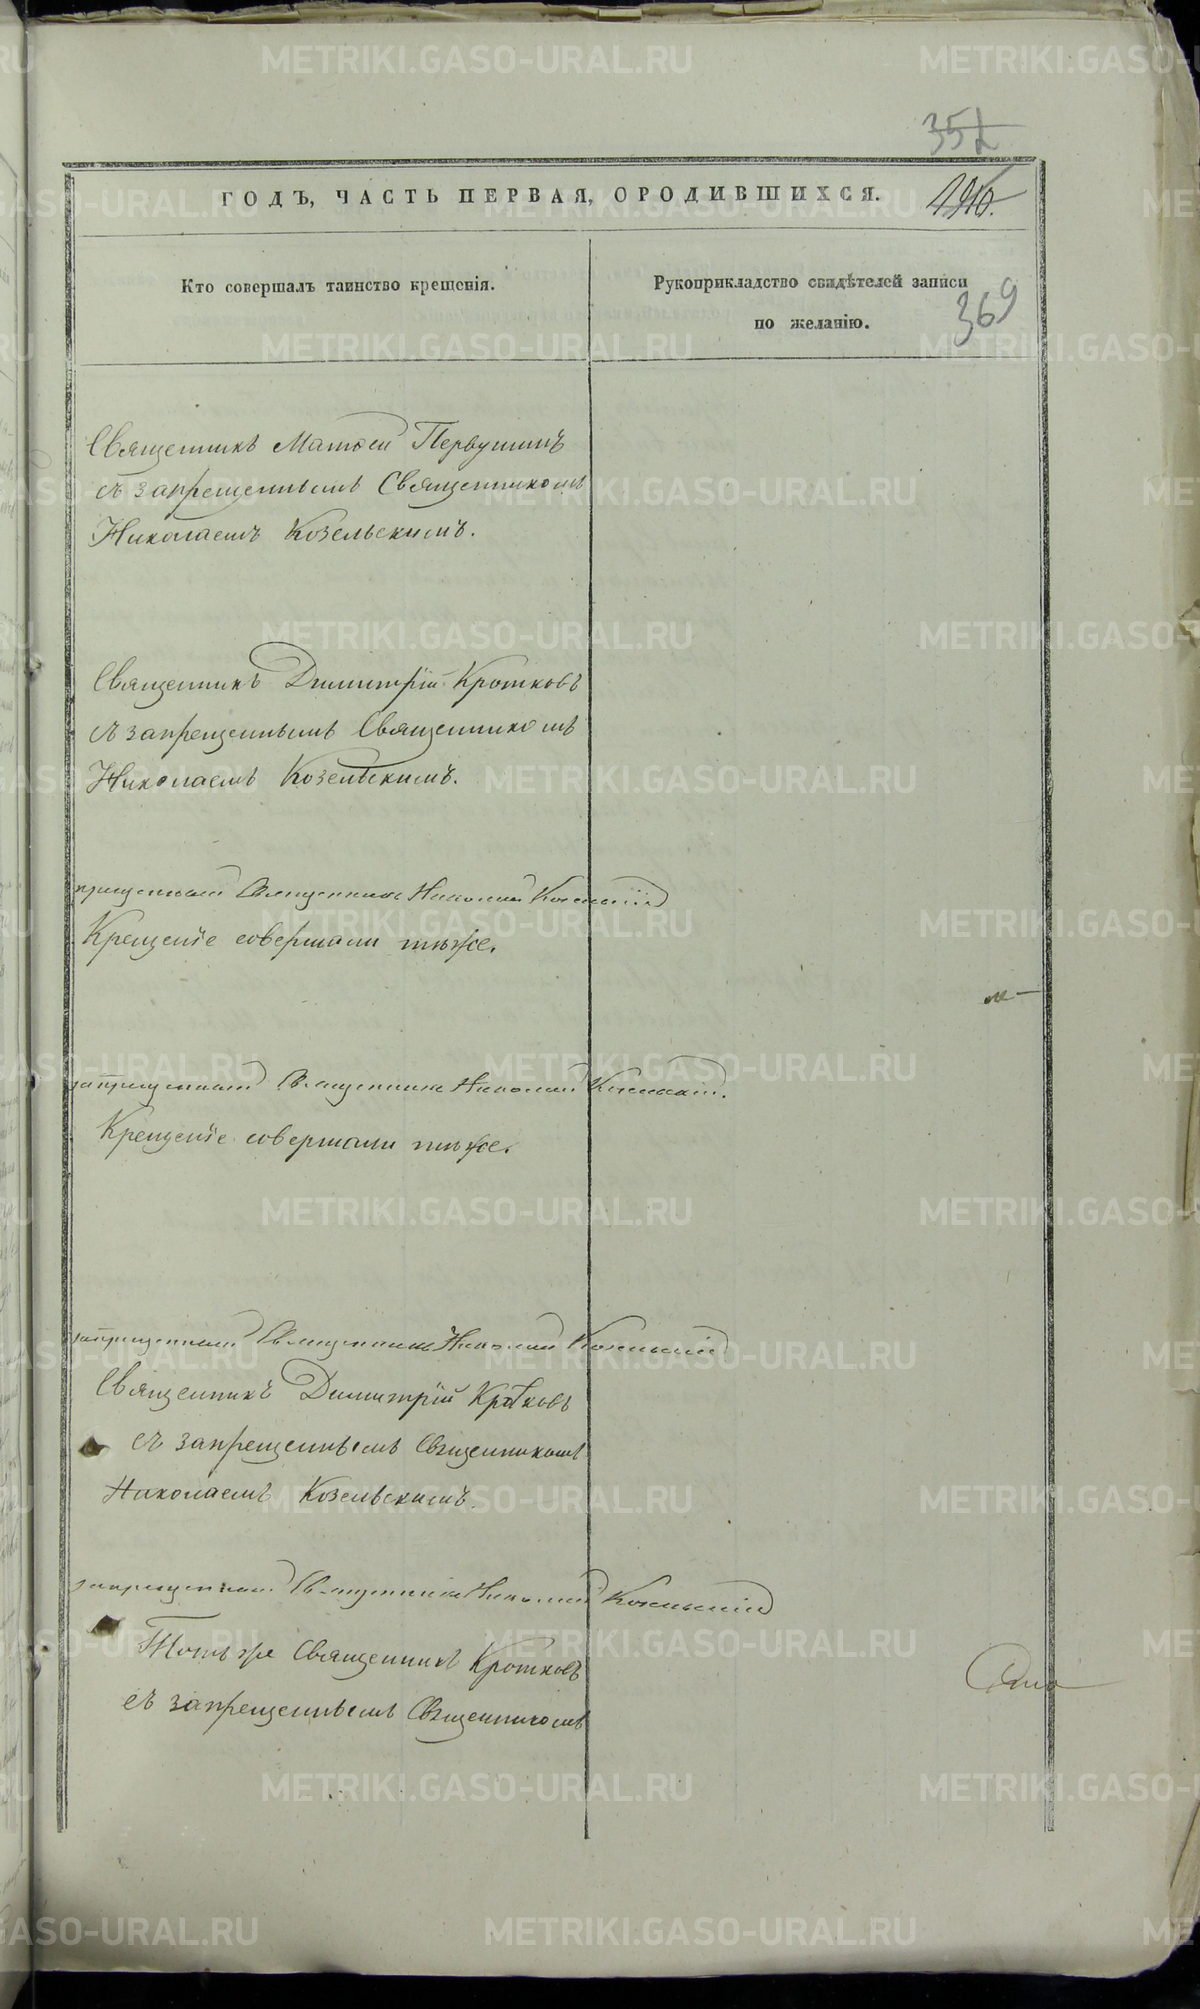 352
ГОДЪ, ЧАСТЬ ПЕРВАЯ, О РОДИВШИХСЯ.
Кто совершалъ таинство крещенія.
Рукоприкладство свидѣтелей записи
по желанію.
369
Священникъ Матѳей Первушинъ
съ запрещеннымъ Священникомъ
Николаемъ Козельскимъ.
Священникъ Димитрій Кротковъ
съ запрещеннымъ Священникомъ
Николаемъ Козельскимъ.
Священникъ Николай Козельскій
Крещеніе совершали тѣже.
запрещенный Священникъ Николай Козельскій.
Крещеніе совершали тѣже.
запрещенный Священникъ Николай Козельскій
Священникъ Димитрій Кротковъ
съ запрещеннымъ Священникомъ
Николаемъ Козельскимъ.
запрещенный Священникъ Николай Козельскій
Тотъ же Священникъ Кротковъ
съ запрещеннымъ Священникомъ
METRIKI.GASO-URAL.RU